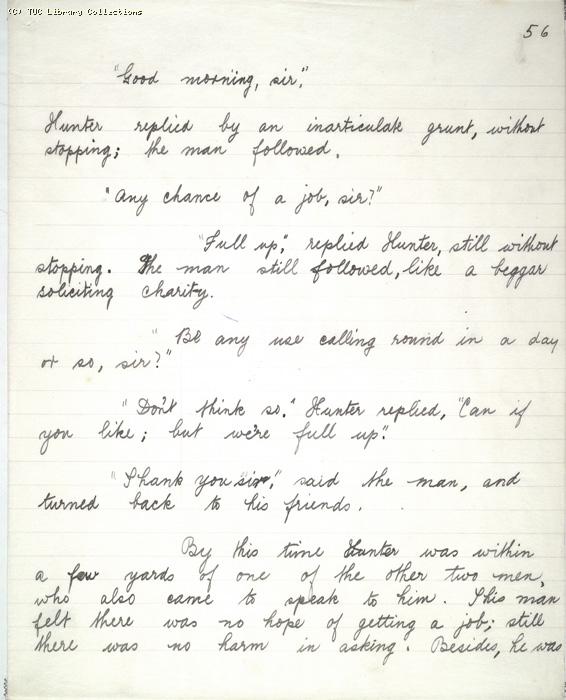 (C) TUC Library Collections
56
"Good morning, sir."
Hunter replied by an inarticulate grunt, without
stopping; the man followed.
"Any chance of a job, sir?"
"Full up", replied Hunter, still without
stopping. The man still followed, like a beggar
soliciting charity.
"Be any use calling round in a day
or so, sir?"
"Don't think so." Hunter replied, "Can if
you like; but we're full up".
"Thank you sir," said the man, and
turned back to his friends.
By this time Hunter was within
a few yards of one of the other two men,
who also came to speak to him. This man
felt there was no hope of getting a job; still
there was no harm in asking. Besides, he was